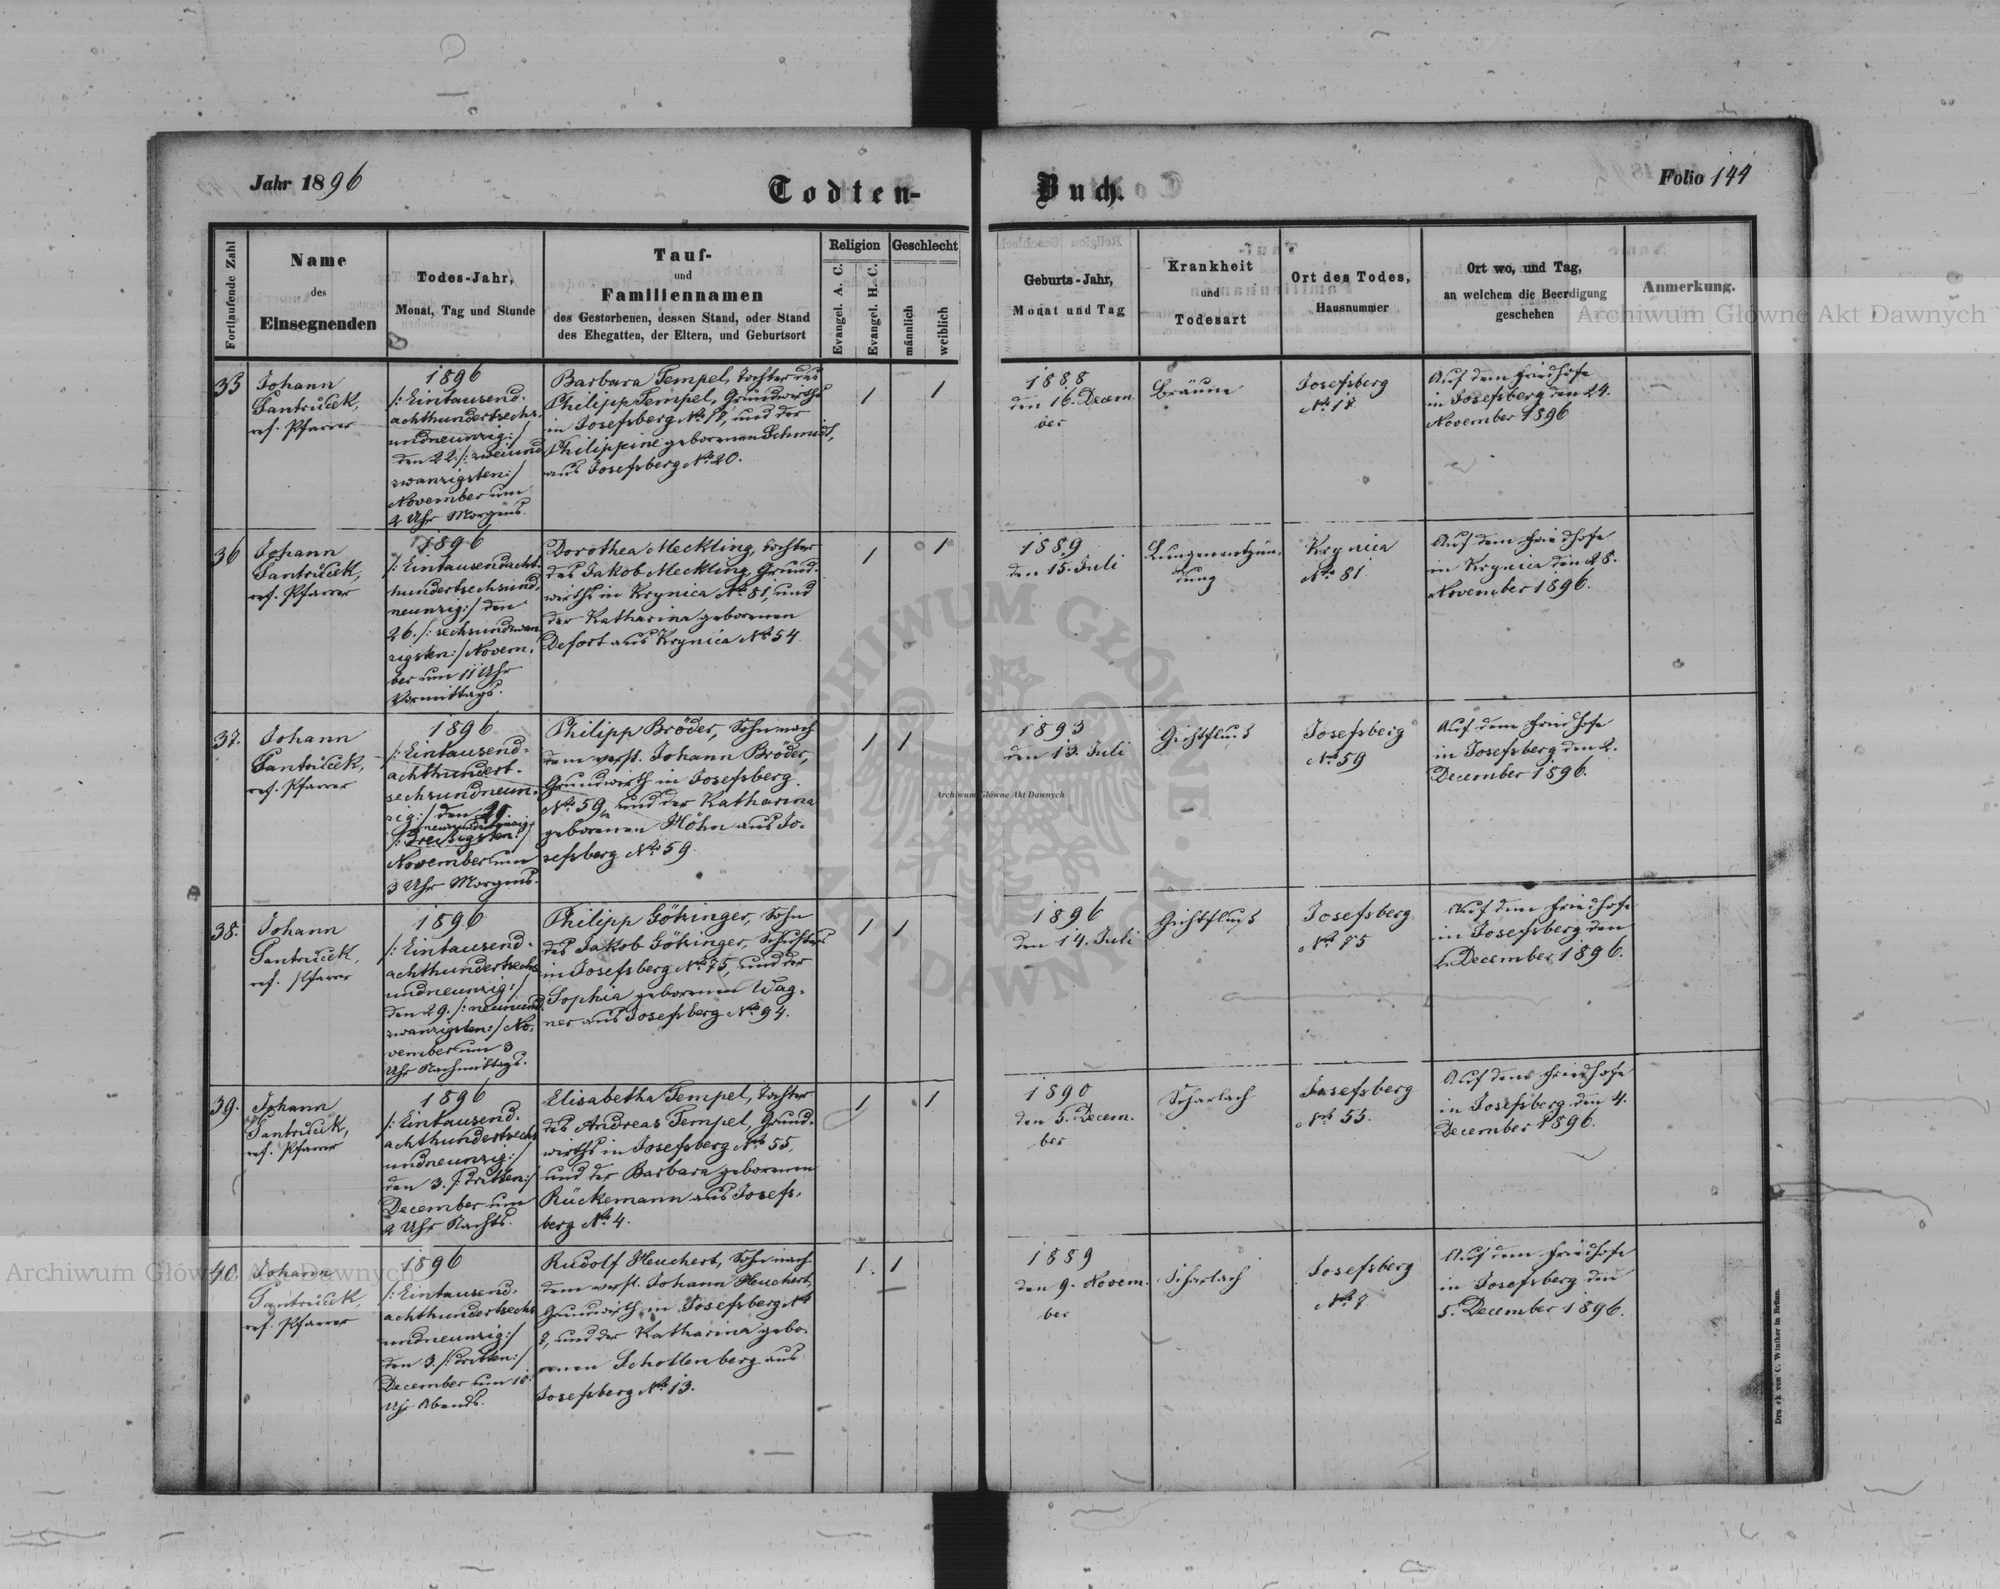 Jahr 1896
Todten-
Buch.
Folio 144
Fortlaufende Zahl
Name
des
Einsegnenden
Todes-Jahr,
Monat, Tag und Stunde
Tauf-
und
Familiennamen
des Gestorbenen, dessen Stand, oder Stand
des Ehegatten, der Eltern, und Geburtsort
Religion
Evangel. A. C.
Evangel. H. C.
Geschlecht
männlich
weiblich
Geburts-Jahr,
Monat und Tag
Krankheit
und
Todesart
Ort des Todes,
Hausnummer
Ort wo, und Tag,
an welchem die Beerdigung
geschehen
Anmerkung.
35
Johann
ref. Pfarrer
1896
/: Eintausend-
achthundertsechs-
undneunzig :/
den 22 /: zweiund
zwanzigsten :/
November um
2 Uhr Morgens.
Barbara Tempel, Tochter des
Philipp Tempel, Grundwirths
in Josefsberg No 17, und der
Philippine geborenen Schmidt,
aus Josefsberg No 20.
1
1
1888
den 16. Decem
ber
Bräune
Josefsberg
No 17
Auf dem Friedhofe
in Josefsberg den 24.
November 1896
36
Johann
ref. Pfarrer
1896
/: Eintausendacht-
hundertsechsund-
neunzig :/ den
26. /: sechsundzwan-
zigsten :/ Novem-
ber um 11 Uhr
Vormittags.
Dorothea Meckling, Tochter
des Jakob Meckling, Grund-
wirths in Krynica No 81, und
der Katharina geborenen
Defort aus Krynica No 54.
1
1
1889
den 15. Juli
Lungenentzün-
dung
Krynica
No 81
Auf dem Friedhofe
in Krynica den 28.
November 1896.
37.
Johann
ref. Pfarrer
1896
/: Eintausend-
achthundert-
sechsundneun-
zig :/ den 29
neunundzwanzig
/: Dreisigsten :/
November um
3 Uhr Morgens.
Philipp Bröder, Sohn nach
dem verst. Johann Bröder,
Grundwirth in Josefsberg
No 59, und der Katharina
geborenen Höhn aus Jo-
sefsberg No 59.
1
1
1893
den 13. Juli
Josefsberg
No 59
Auf dem Friedhofe
in Josefsberg den 2.
December 1896.
38.
Johann
ref. Pfarrer
1896
/: Eintausend-
achthundertsechs
undneunzig :/
den 29. /: neunund-
zwanzigsten :/ No-
vember um 3
Uhr Nachmittags.
Philipp Götzinger, Sohn
des Jakob Götzinger, Schusters
in Josefsberg No 75, und der
Sophia geborenen Wag-
ner aus Josefsberg No 94.
1
1
1896
den 14. Juli
Josefsberg
No 75
Auf dem Friedhofe
in Josefsberg den
December 1896.
39.
Johann
ref. Pfarrer
1896
/: Eintausend-
achthundertsechs
undneunzig :/
den 3. /: dritten :/
December um
2 Uhr Nachts.
Elisabetha Tempel, Tochter
des Andreas Tempel, Grund-
wirths in Josefsberg No 55,
und der Barbara geborenen
Rückemann aus Josefs-
berg No 4.
1
1
1890
den 5. Decem-
ber
Scharlach
Josefsberg
No 55.
Auf dem Friedhofe
in Josefsberg den 4.
December 1896.
40.
Johann
ref. Pfarrer
1896
/: Eintausend-
achthundertsechs
undneunzig :/
den 3. /: dritten :/
December um 10
Uhr Abends.
Rudolf Heuchert, Sohn nach
dem verst. Johann Heuchert,
Grundwirth in Josefsberg No
7, und der Katharina gebo-
renen Schollenberg aus
Josefsberg No 13.
1
1
1889
den 9. Novem-
ber
Scharlach
Josefsberg
No 7
Auf dem Friedhofe
in Josefsberg den
5. December 1896.
Archiwum Główne Akt Dawnych
Archiwum Główne Akt Dawnych
Archiwum Główne Akt Dawnych
ARCHIWUM GŁÓWNE AKT DAWNYCH